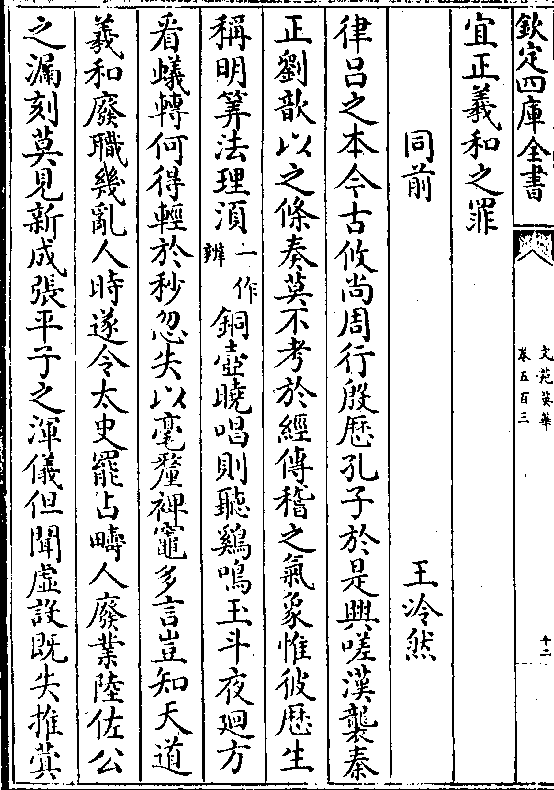 欽定四庫全書
文苑英華
卷五百三
十二
宜正羲和之罪
同前　王泠然
律呂之本今古攸尚周行殷厯孔子於是興嗟漢襲秦
正劉歆以之條奏莫不考於經傳稽之氣象惟彼厯生
稱明筭法理須一作辨銅壺曉唱則聽鷄鳴玉斗夜廻方
看蟻轉何得輕於秒忽失以毫釐禆竈多言豈知天道
羲和廢職幾亂人時遂令太史罷占疇人廢業陸佐公
之漏刻莫見新成張平子之渾儀但聞虚設既失推蓂